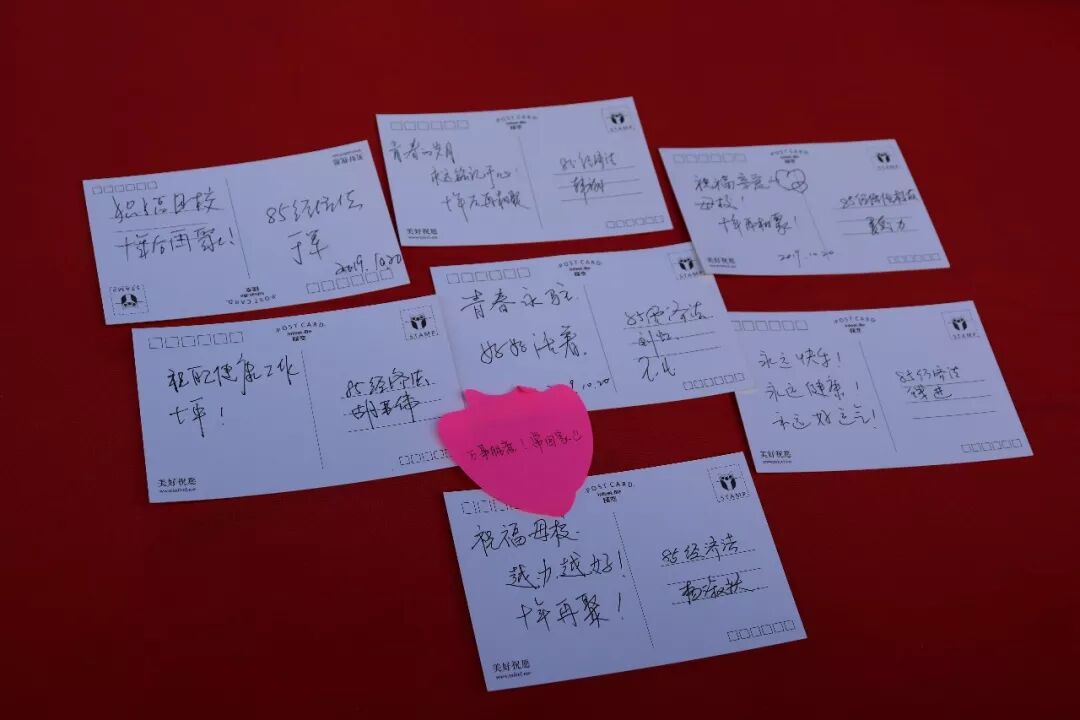 POST CARD
STAMP
青春的岁月
永远铭记于心!
十年后再相聚
85经济法
美好祝愿
祝福母校
十年后再聚!
85经济法
于军
2019.10.20
POST CARD
STAMP
祝福亲爱
母校!
十年再相聚!
2019.10.20
STAMP
美好祝愿
POST CARD
STAMP
青春永驻.
好好活着.
10.20
85经济法
POST CARD
STAMP
健康工作
十年!
85经济法
胡
美好祝愿
POST CARD
STAMP
永远快乐!
永远健康!
永远好运气!
85经济法
美好祝愿
万事顺意!常回家
POST CARD
STAMP
祝福母校.
越办越好!
十年再聚!
85经济法
杨
美好祝愿